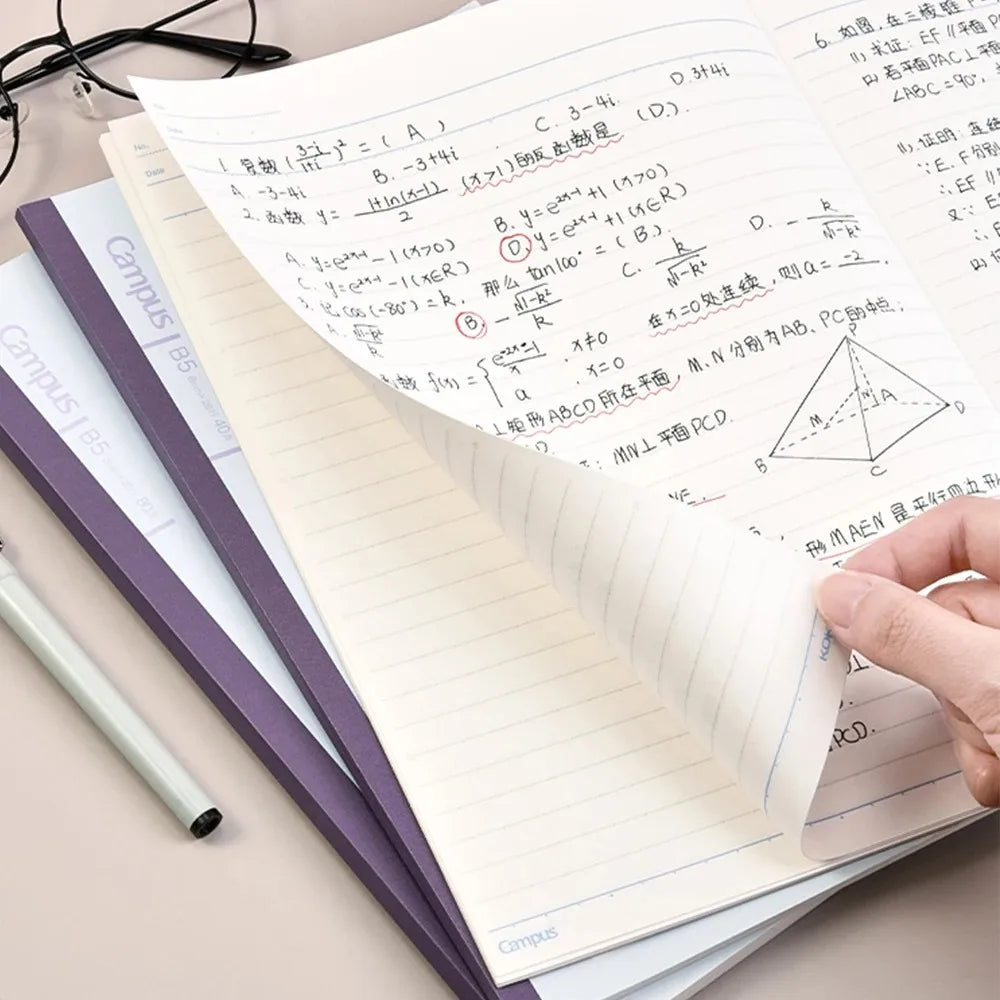 No.
Date
1. 导数 (3-i/1+i)² = ( A )
A. -3-4i B. -3+4i C. 3-4i D. 3+4i
2. 函数 y = 1+ln(x-1)/2 (x>1)的反函数是 (D).
A. y=e^2x-1 -1(x>0) B. y=e^2x-1 +1(x>0)
C. y=e^2x-1 -1(x∈R) D. y=e^2x-1 +1(x∈R)
3. 记 cos(-80°)=k, 那么 tan100° = ( B ).
A. √1-k²/k B. -√1-k²/k C. k/√1-k² D. -k/√1-k²
函数 f(x)={ e^-2x-1/x , x≠0 在x=0处连续, 则a=-2.
a , x=0
⊥矩形ABCD所在平面, M、N分别为AB、PC的中点;
: MN⊥平面PCD.
P
M N A D
B C
形MAEN是平行四边形
PCD.
6. 如图, 在三棱锥P
(1) 求证: EF∥平面P
(2) 若平面PAC⊥平面
∠ABC=90°,
(1). 证明: 连结
∵E、F分别
∴EF∥
又∵E
∴E
(2)
KOK
Campus
Campus B5 40
Campus B5 80